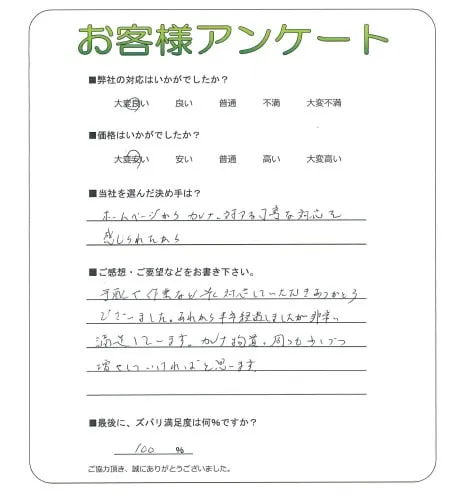 お客様アンケート
■弊社の対応はいかがでしたか？
大変良い 良い 普通 不満 大変不満
■価格はいかがでしたか？
大変安い 安い 普通 高い 大変高い
■当社を選んだ決め手は？
ホームページから 対する丁寧な対応を
感じられたから
■ご感想・ご要望などをお書き下さい。
手配や作業など 対応していただきありがとう
ございました。あれから半年経過しましたが非常に
満足しています。 少しづつ
増やしていければと思います
■最後に、ズバリ満足度は何%ですか？
100 %
ご協力頂き、誠にありがとうございました。